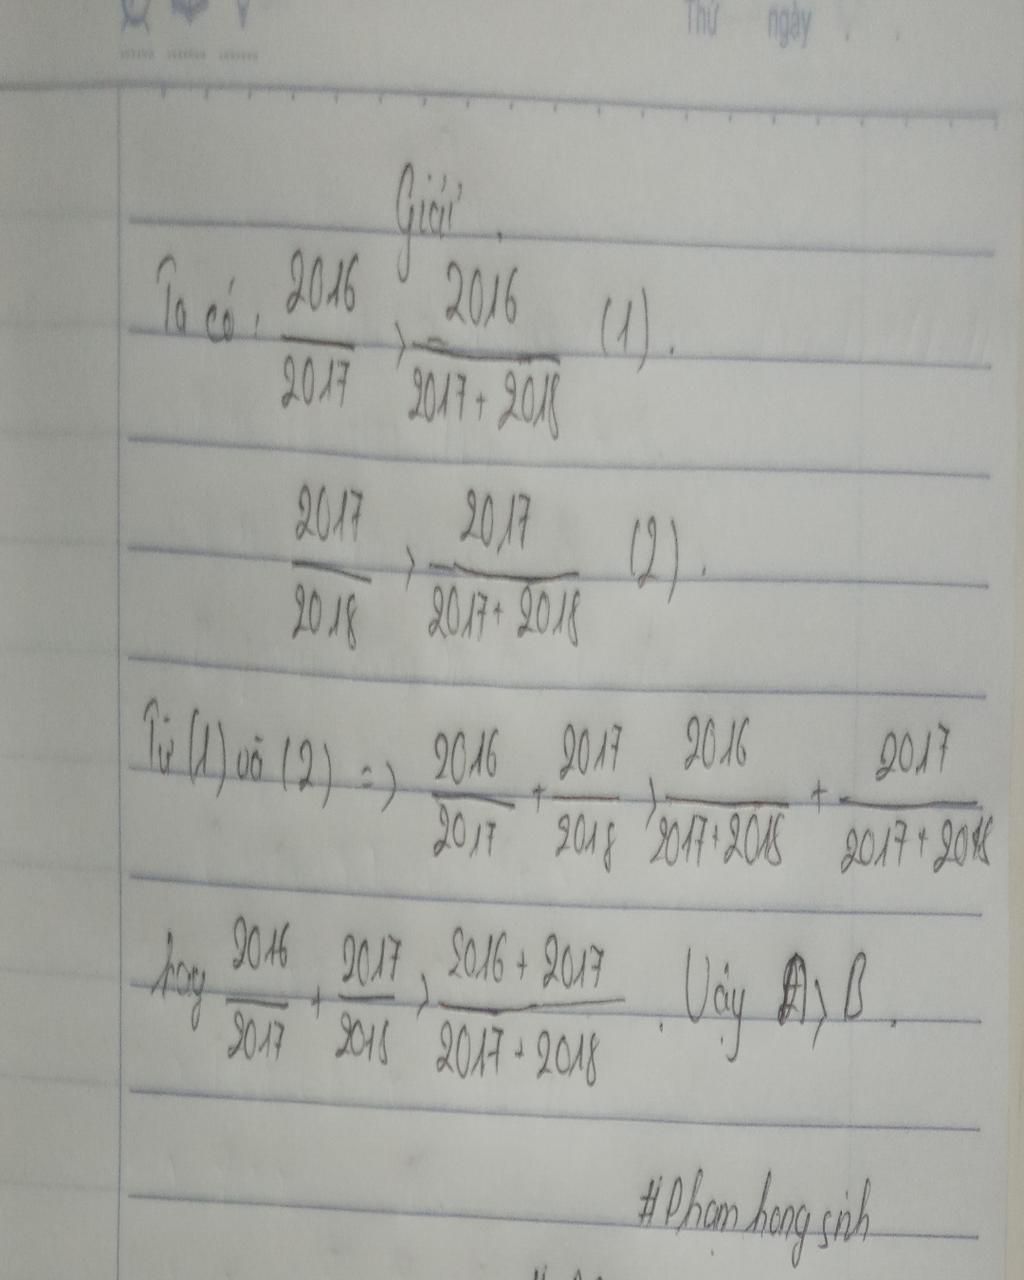 Thứ ngày
Giải.
Ta có: 2016/2017 > 2016/(2017 + 2018) (1).
2017/2018 > 2017/(2017 + 2018) (2).
Từ (1) và (2) => 2016/2017 + 2017/2018 > 2016/(2017 + 2018) + 2017/(2017 + 2018)
hay 2016/2017 + 2017/2018 > (2016 + 2017)/(2017 + 2018). Vậy A > B.
#Phamhongsinh